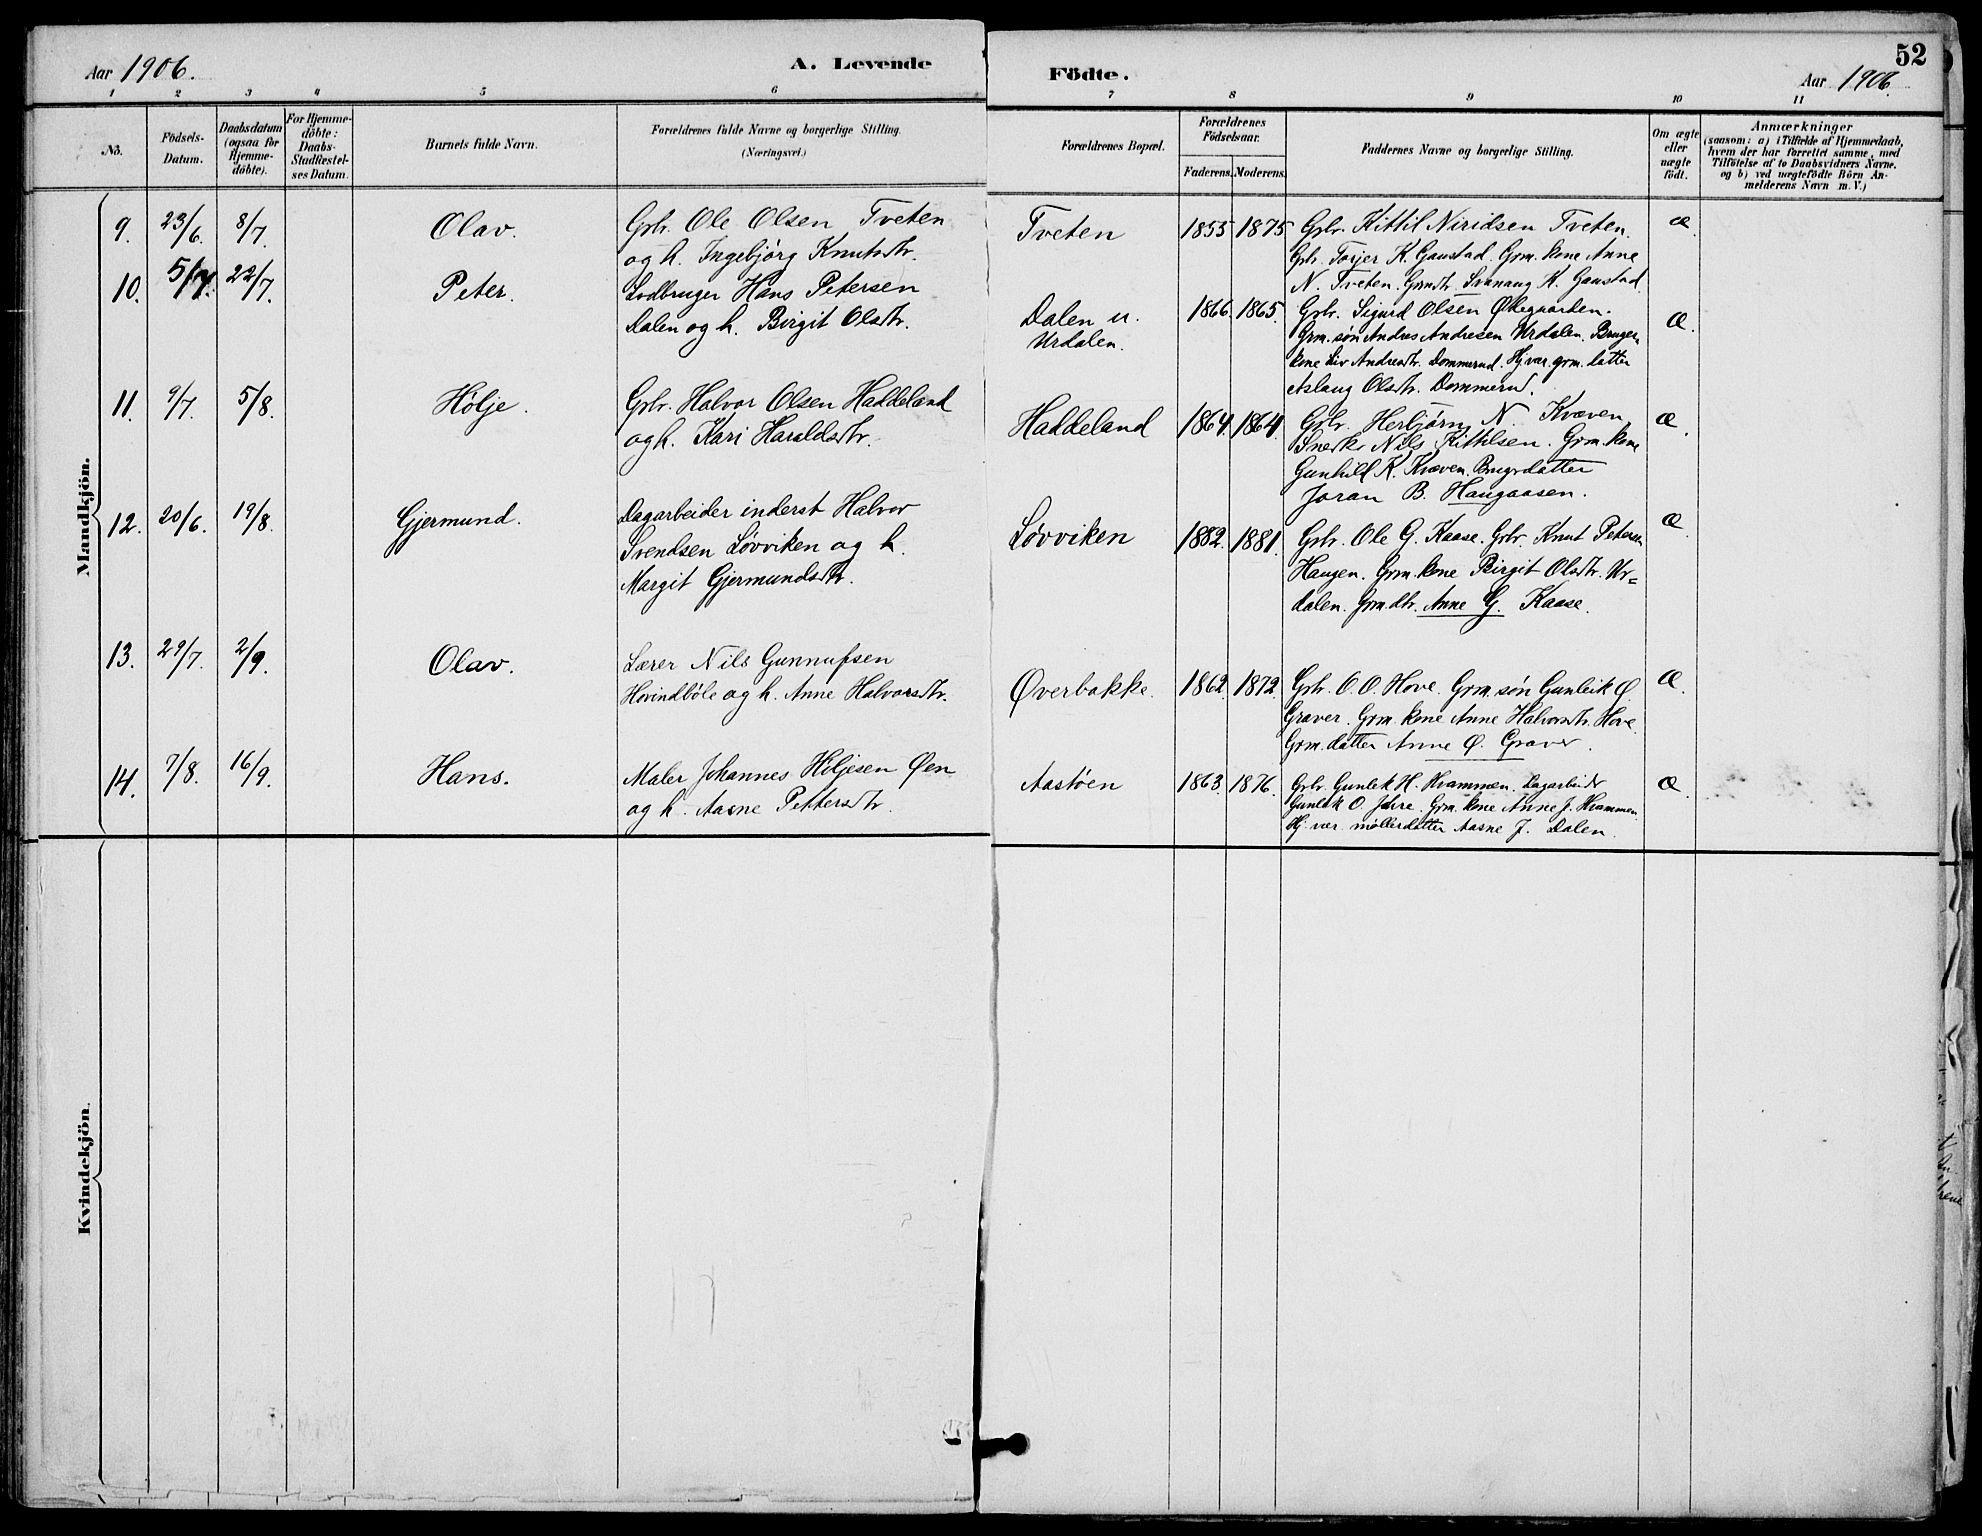 Aar 1906.
A. Levende
Födte.
52
Aar 1906.
1 2 3 4 5 6 7 8 9 10 11
No.
Födsels-Datum.
Daabsdatum (ogsaa for Hjemme-döbte).
For Hjemme-döbte: Daabs-Stadfæstel-ses Datum.
Barnets fulde Navn.
Forældrenes fulde Navne og borgerlige Stilling.
(Næringsvei.)
Forældrenes Bopæl.
Forældrenes Födselsaar.
Faderens. Moderens.
Faddernes Navne og borgerlige Stilling.
Om ægte eller uægte födt.
Anmærkninger
(saasom: a) i Tilfælde af Hjemmedaab,
hvem der har forrettet samme, med
Tilföielse af to Daabsvidners Navne.
og b) ved uægtefödte Börn An-
melderens Navn m. V.)
Mandkjön.
9. 23/6. 8/7. Olav.
Gbr. Ole Olsen Tveten
og h. Ingebjørg Knutsdtr.
Tveten 1855 1875
Gbr. Kittil Niridsen Tveten.
Gbr. Torjer K. Gaustad. Grm. kone Anne
N. Tveten. Grmdtr. Svanaug K. Gaustad
Æ.
10. 5/7. 22/7. Peter.
Lodbruger Hans Petersen
Dalen og h. Birgit Olsdtr.
Dalen u.
Urdalen.
1866. 1865.
Gbr. Sigurd Olsen Ødegaarden.
Grm. søn Andres Andresen Urdalen. Bruger
kone Liv Andresdtr. Dommerud. Hj. var. grm. datter
Aslaug Olsdtr. Dommerud.
Æ.
11. 9/7. 5/8. Hølje.
Gbr. Halvor Olsen Haddeland
og h. Kari Haraldsdtr.
Haddeland 1864. 1864.
Gbr. Herbjørn N. Kvæven
Snedker Nils Kittilsen. Grm. kone
Gunhild K. Kvæven. Brugrdatter
Joran B. Haugaasen.
Æ.
12. 20/6. 19/8. Gjermund.
Dagarbeider inderst Halvor
Svendsen Løvviken og h.
Margit Gjermundsdtr.
Løvviken 1882. 1881.
Gbr. Ole G. Kaase. Gbr. Knut Petersen
Haugen. Grm. kone Birgit Olsdtr. Ur=
dalen. Grm. dtr. Anne G. Kaase.
Æ.
13. 29/7. 2/9. Olav.
Lærer Nils Gunnufsen
Hovindbøle og h. Anne Halvorsdtr.
Øverbakke. 1862. 1872.
Gbr. O. O. Hove. Grm. søn Gunleik Ø
Graver. Grm. kone Anne Halvorsdtr. Hove.
Grm. datter Anne Ø. Graver.
Æ.
14. 7/8. 16/9. Hans.
Maler Johannes Höljesen Øen
og h. Aasne Pettersdtr.
Aastøen 1863. 1876.
Gbr. Gunlek H. Kvammen. Dagarbeider
Gunlek O. Jøbre. Grm. kone Anne J. Kvammen
Hj. var møllerdatter Aasne J. Dalen.
Æ.
Kvindekjön.